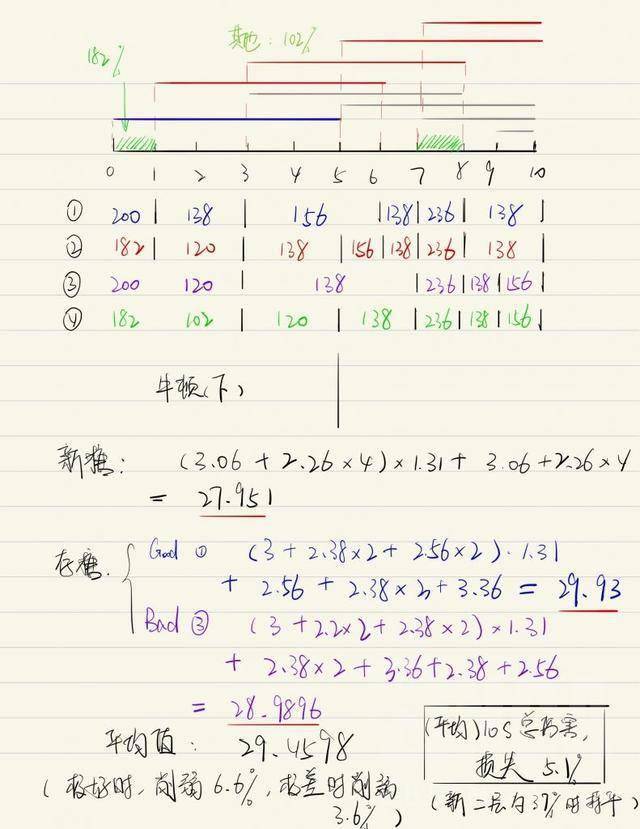 其他:102%
182%
0 1 2 3 4 5 6 7 8 9 10
① 200 | 138 | 156 | 138 | 236 | 138 |
② 182 | 120 | 138 | 156 | 138 | 236 | 138 |
③ 200 120 | 138 | 236 | 138 | 156 |
④ 182 102 | 120 | 138 | 236 | 138 | 156 |
牛顿(下)
新糖: (3.06 + 2.26×4)×1.31 + 3.06+2.26×4
= 27.951
存糖. Good ① (3 + 2.38×2 + 2.56×2)·1.31
+ 2.56 + 2.38×2 + 3.36 = 29.93
Bad ③ (3 + 2.2×2 + 2.38×2)×1.31
+ 2.38×2 + 3.36 + 2.38 + 2.56
= 28.9896
平均值: 29.4598
(极好时,削弱6.6%,极差时削弱
3.6%)
(平均)10s总伤害,
损失 5.1%
(新二层为37%时持平)